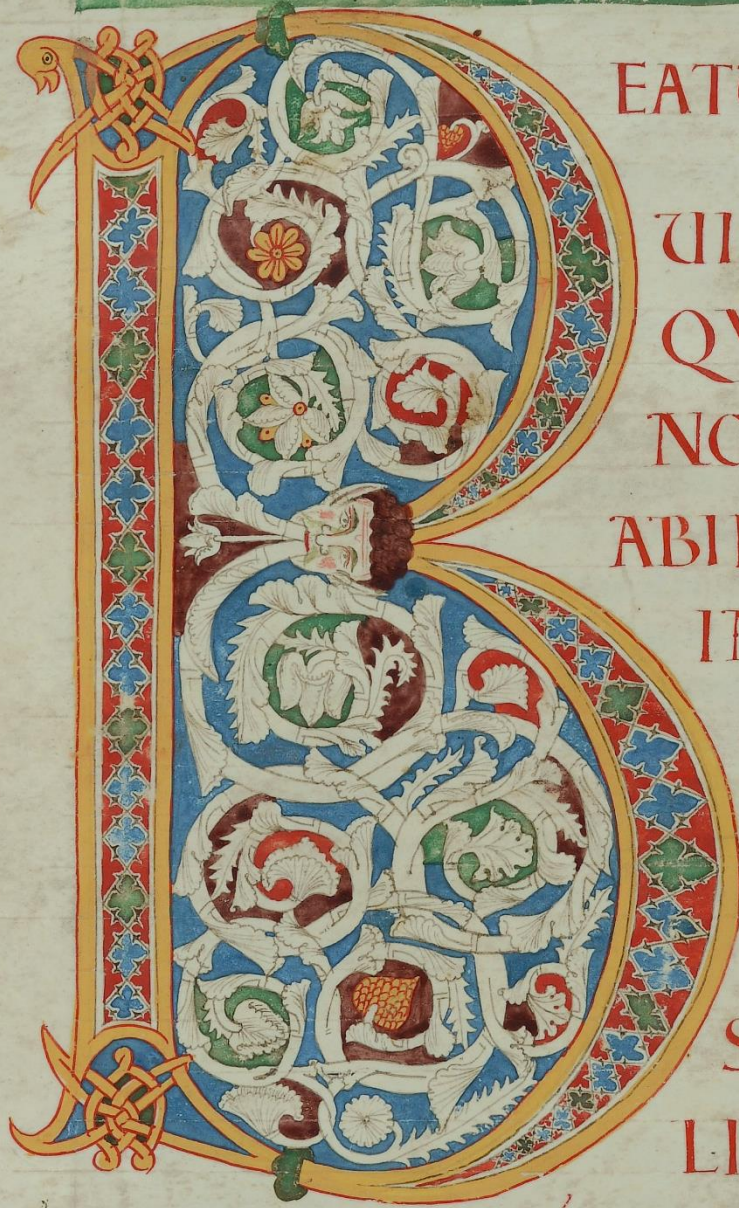 B EAT
UI
QV
NO
ABI
I
S
LI